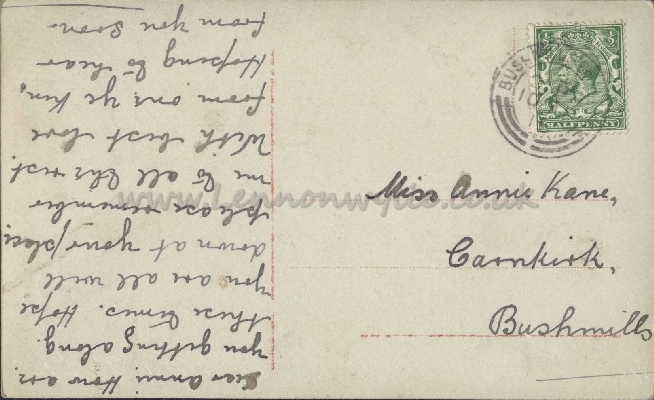 Dear Annie. How are
you getting along.
these times. Hope
you are all well
down at your place,
please remember
me to all the rest.
With best love
from one ye ken,
Hoping to hear
from you soon
BUSH
HALFPENNY
Miss Annie Kane,
Carnkirk,
Bushmills
www.Lennonwylie.co.uk